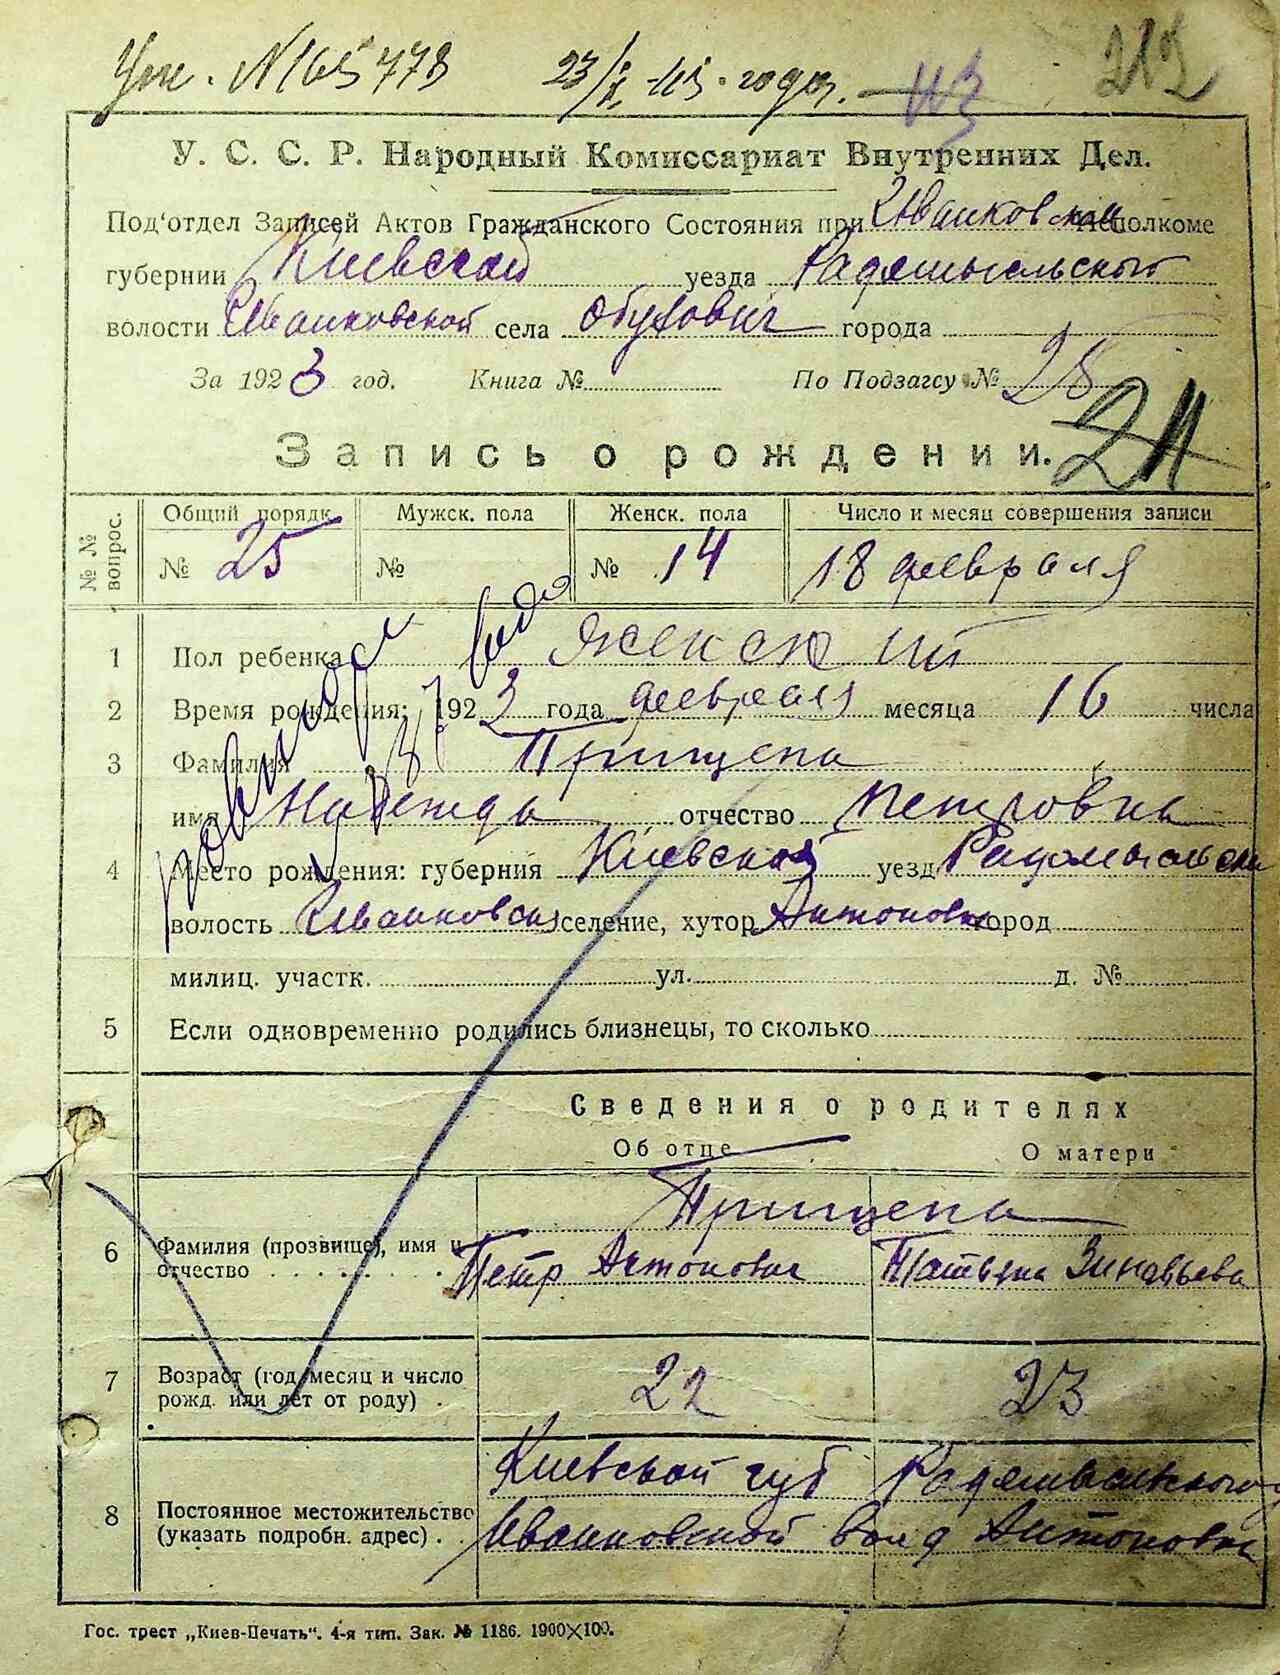 №165773 23/X-45 годa. 113 212
У. С. С. Р. Народный Комиссариат Внутренних Дел.
Под'отдел Записей Актов Гражданского Состояния при Иванковском Исполкоме
губернии Киевской уезда Радомысльского
волости Иванковской села Обухович города
За 1923 год. Книга № По Подзагсу № 28
Запись о рождении. 24
№№ вопрос. Общий порядк Мужск. пола Женск. пола Число и месяц совершения записи
№ 25 № № 14 18 февраля
1 Пол ребенка женский
2 Время рождения: 1923 года февраля месяца 16 числа
3 Фамилия Прищепа
имя Надежда отчество Петровна
4 Место рождения: губерния Киевская уезд Радомысльски
волость Иванковская селение, хутор Антоновка город
милиц. участк. ул. д. №
5 Если одновременно родились близнецы, то сколько
Сведения о родителях
Об отце О матери
Прищепа
6 Фамилия (прозвище), имя и
отчество . . . . . . . . Петр Антонович Татьяна Зиновьева
7 Возраст (год, месяц и число
рожд. или лет от роду) . 22 23
Киевской губ Радомысльского
8 Постоянное местожительство
(указать подробн. адрес) . Иванковской вол д Антоновка
Гос. трест „Киев-Печать“. 4-я тип. Зак. № 1186. 1900×100.